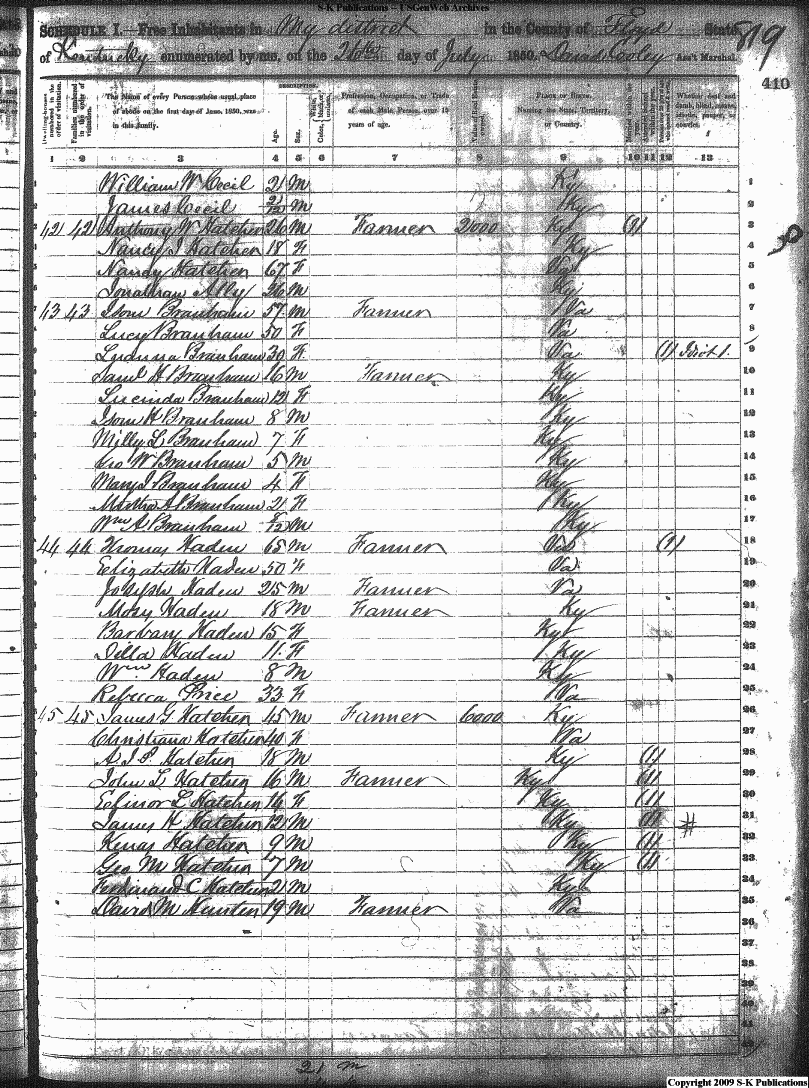 S-K Publications - USGenWeb Archives
SCHEDULE I.—Free Inhabitants in My district in the County of Floyd State
of Kentucky enumerated by me, on the 26th day of July 1850. Ass't Marshal.
819
410
Dwellings numbered in the order of visitation.
Families numbered in the order of visitation.
The Name of every Person whose usual place of abode on the first day of June, 1850, was in this family.
DESCRIPTION.
Age.
Sex.
Profession, Occupation, or Trade of each Male Person over 15 years of age.
Value of Real Estate owned.
PLACE OF BIRTH. Naming the State, Territory, or Country.
1 2 3 4 5 6 7 8 9 10 11 12 13
1 William W Cecil 21 M Ky 1
2 James Cecil 2/12 M Ky 2
42 42 Anthony W Hatcher 26 M Farmer 2000 Ky (1) 3
Nancy J Hatcher 18 F Ky 4
Nancy Hatcher 67 F Va 5
Jonathan Ally 26 M Ky 6
43 43 Isom Branham 57 M Farmer Va 7
Lucy Branham 50 F Va 8
Branham 30 F Va (1) Idiot 1. 9
Saml H Branham 16 M Farmer Ky 10
Lucinda Branham 12 F Ky 11
Isom H Branham 8 M Ky 12
Milly L Branham 7 F Ky 13
Geo W Branham 5 M Ky 14
Mary J Branham 4 F Ky 15
Martha A Branham 2 F Ky 16
Wm A Branham /12 M Ky 17
44 44 Thomas Haden 65 M Farmer Va (1) 18
Elizabeth Haden 50 F Va 19
Joseph Haden 25 M Farmer Va 20
Mosy Haden 18 M Farmer Ky 21
Barbary Haden 15 F Ky 22
Haden 11 F Ky 23
Wm Haden 8 M Ky 24
Rebecca Price 33 F Va 25
45 45 James G Hatcher 45 M Farmer 6000 Ky 26
Christiana Hatcher 40 F Va 27
A J P Hatcher 18 M Ky (1) 28
John L Hatcher 16 M Farmer Ky (1) 29
L Hatcher 14 F Ky (1) 30
James H Hatcher 12 M Ky (1) # 31
Kenas Hatcher 9 M Ky (1) 32
Geo M Hatcher 7 M Ky (1) 33
Ferdinand C Hatcher 2 M Ky 34
David M Hunter 19 M Farmer Va 35
36
37
38
39
40
41
42
21 m
Copyright 2009 S-K Publications